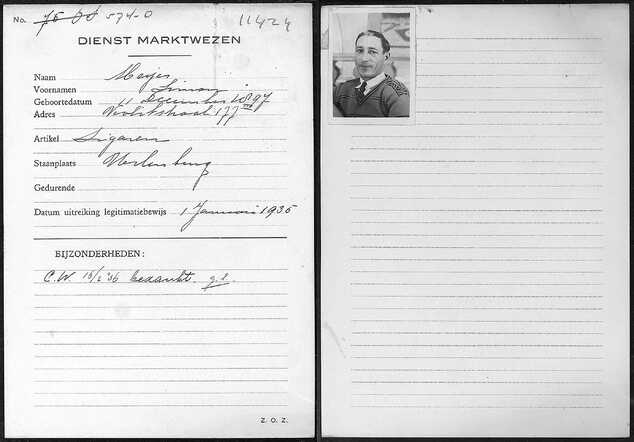 No. 574-O 11424
DIENST MARKTWEZEN
Naam Meijer
Voornamen Simon
Geboortedatum 11 December 1897
Adres 177
Artikel Sigaren
Staanplaats
Gedurende
Datum uitreiking legitimatiebewijs 1 Januari 1935
BIJZONDERHEDEN:
C.W. 15/2 '36 bedankt.
Z. O. Z.